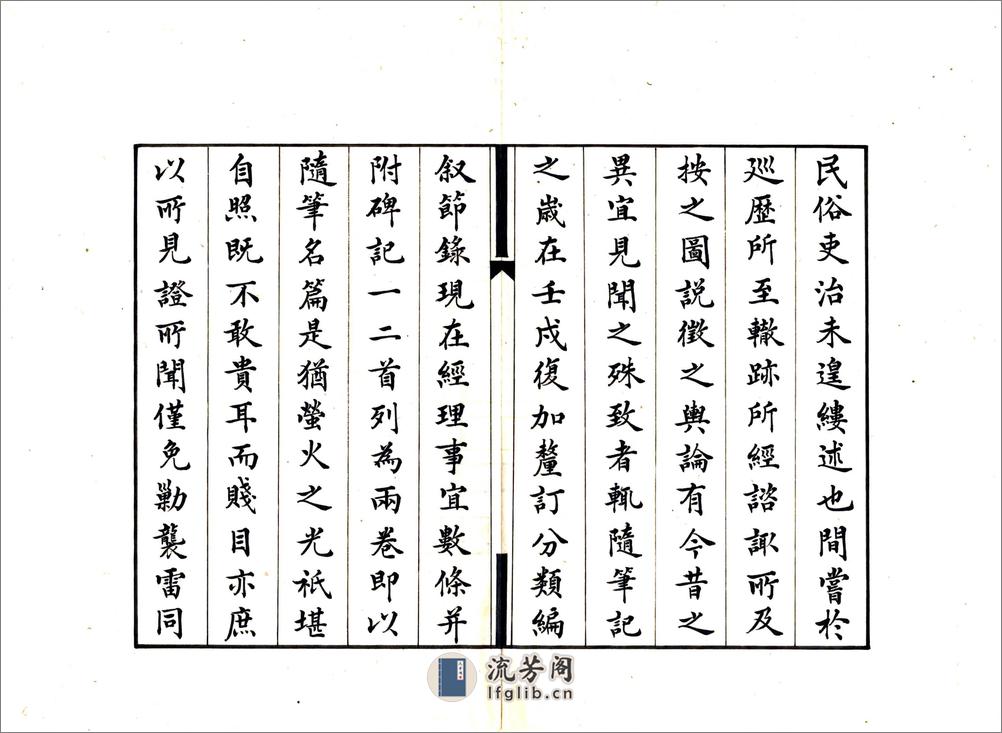 民俗吏治未遑縷述也間嘗於
廵歷所至轍跡所經諮諏所及
按之圖説徵之輿論有今昔之
異宜見聞之殊致者輒隨筆記
之歲在壬戌復加釐訂分類編
叙節錄現在經理事宜數條并
附碑記一二首列為兩卷即以
隨筆名篇是猶螢火之光祇堪
自照既不敢貴耳而賤目亦庶
以所見證所聞僅免勦襲雷同
流芳阁
lfglib.cn